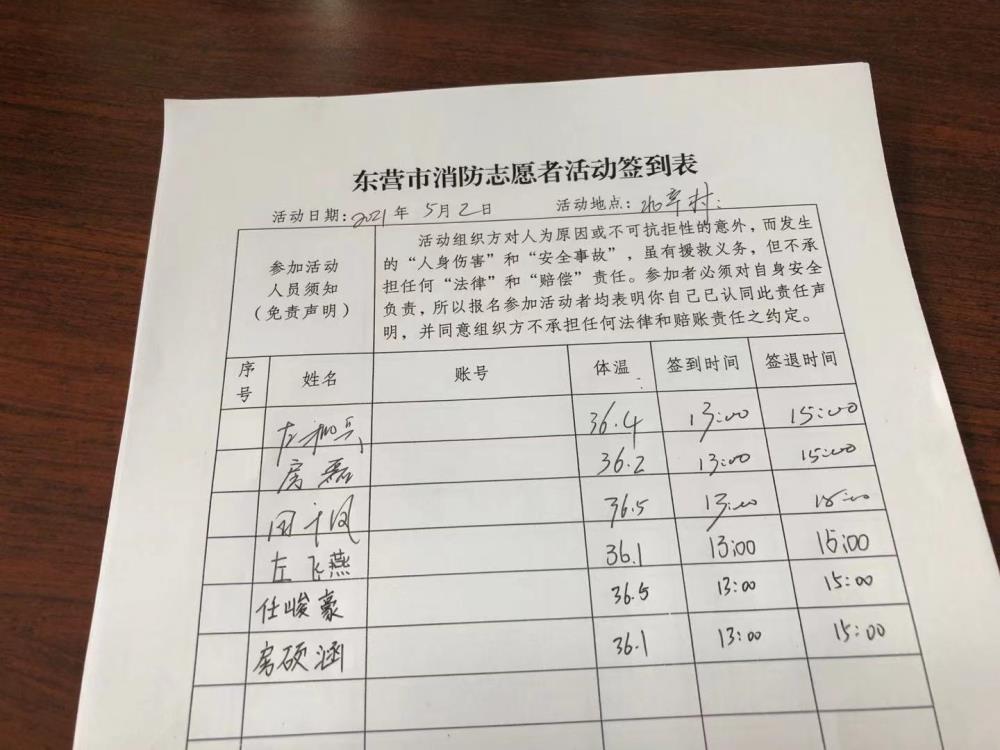 东营市消防志愿者活动签到表
活动日期：2021年 5月2日 活动地点：北辛村
参加活动
人员须知
（免责声明）
活动组织方对人为原因或不可抗拒性的意外，而发生
的“人身伤害”和“安全事故”，虽有援救义务，但不承
担任何“法律”和“赔偿”责任。参加者必须对自身安全
负责，所以报名参加活动者均表明你自己已认同此责任声
明，并同意组织方不承担任何法律和赔账责任之约定。
序号 姓名 账号 体温 签到时间 签退时间
左 兵 36.4 13:00 15:00
房磊 36.2 13:00 15:00
凤 36.5 13:00 15:00
左飞燕 36.1 13:00 15:00
任峻豪 36.5 13:00 15:00
房硕涵 36.1 13:00 15:00